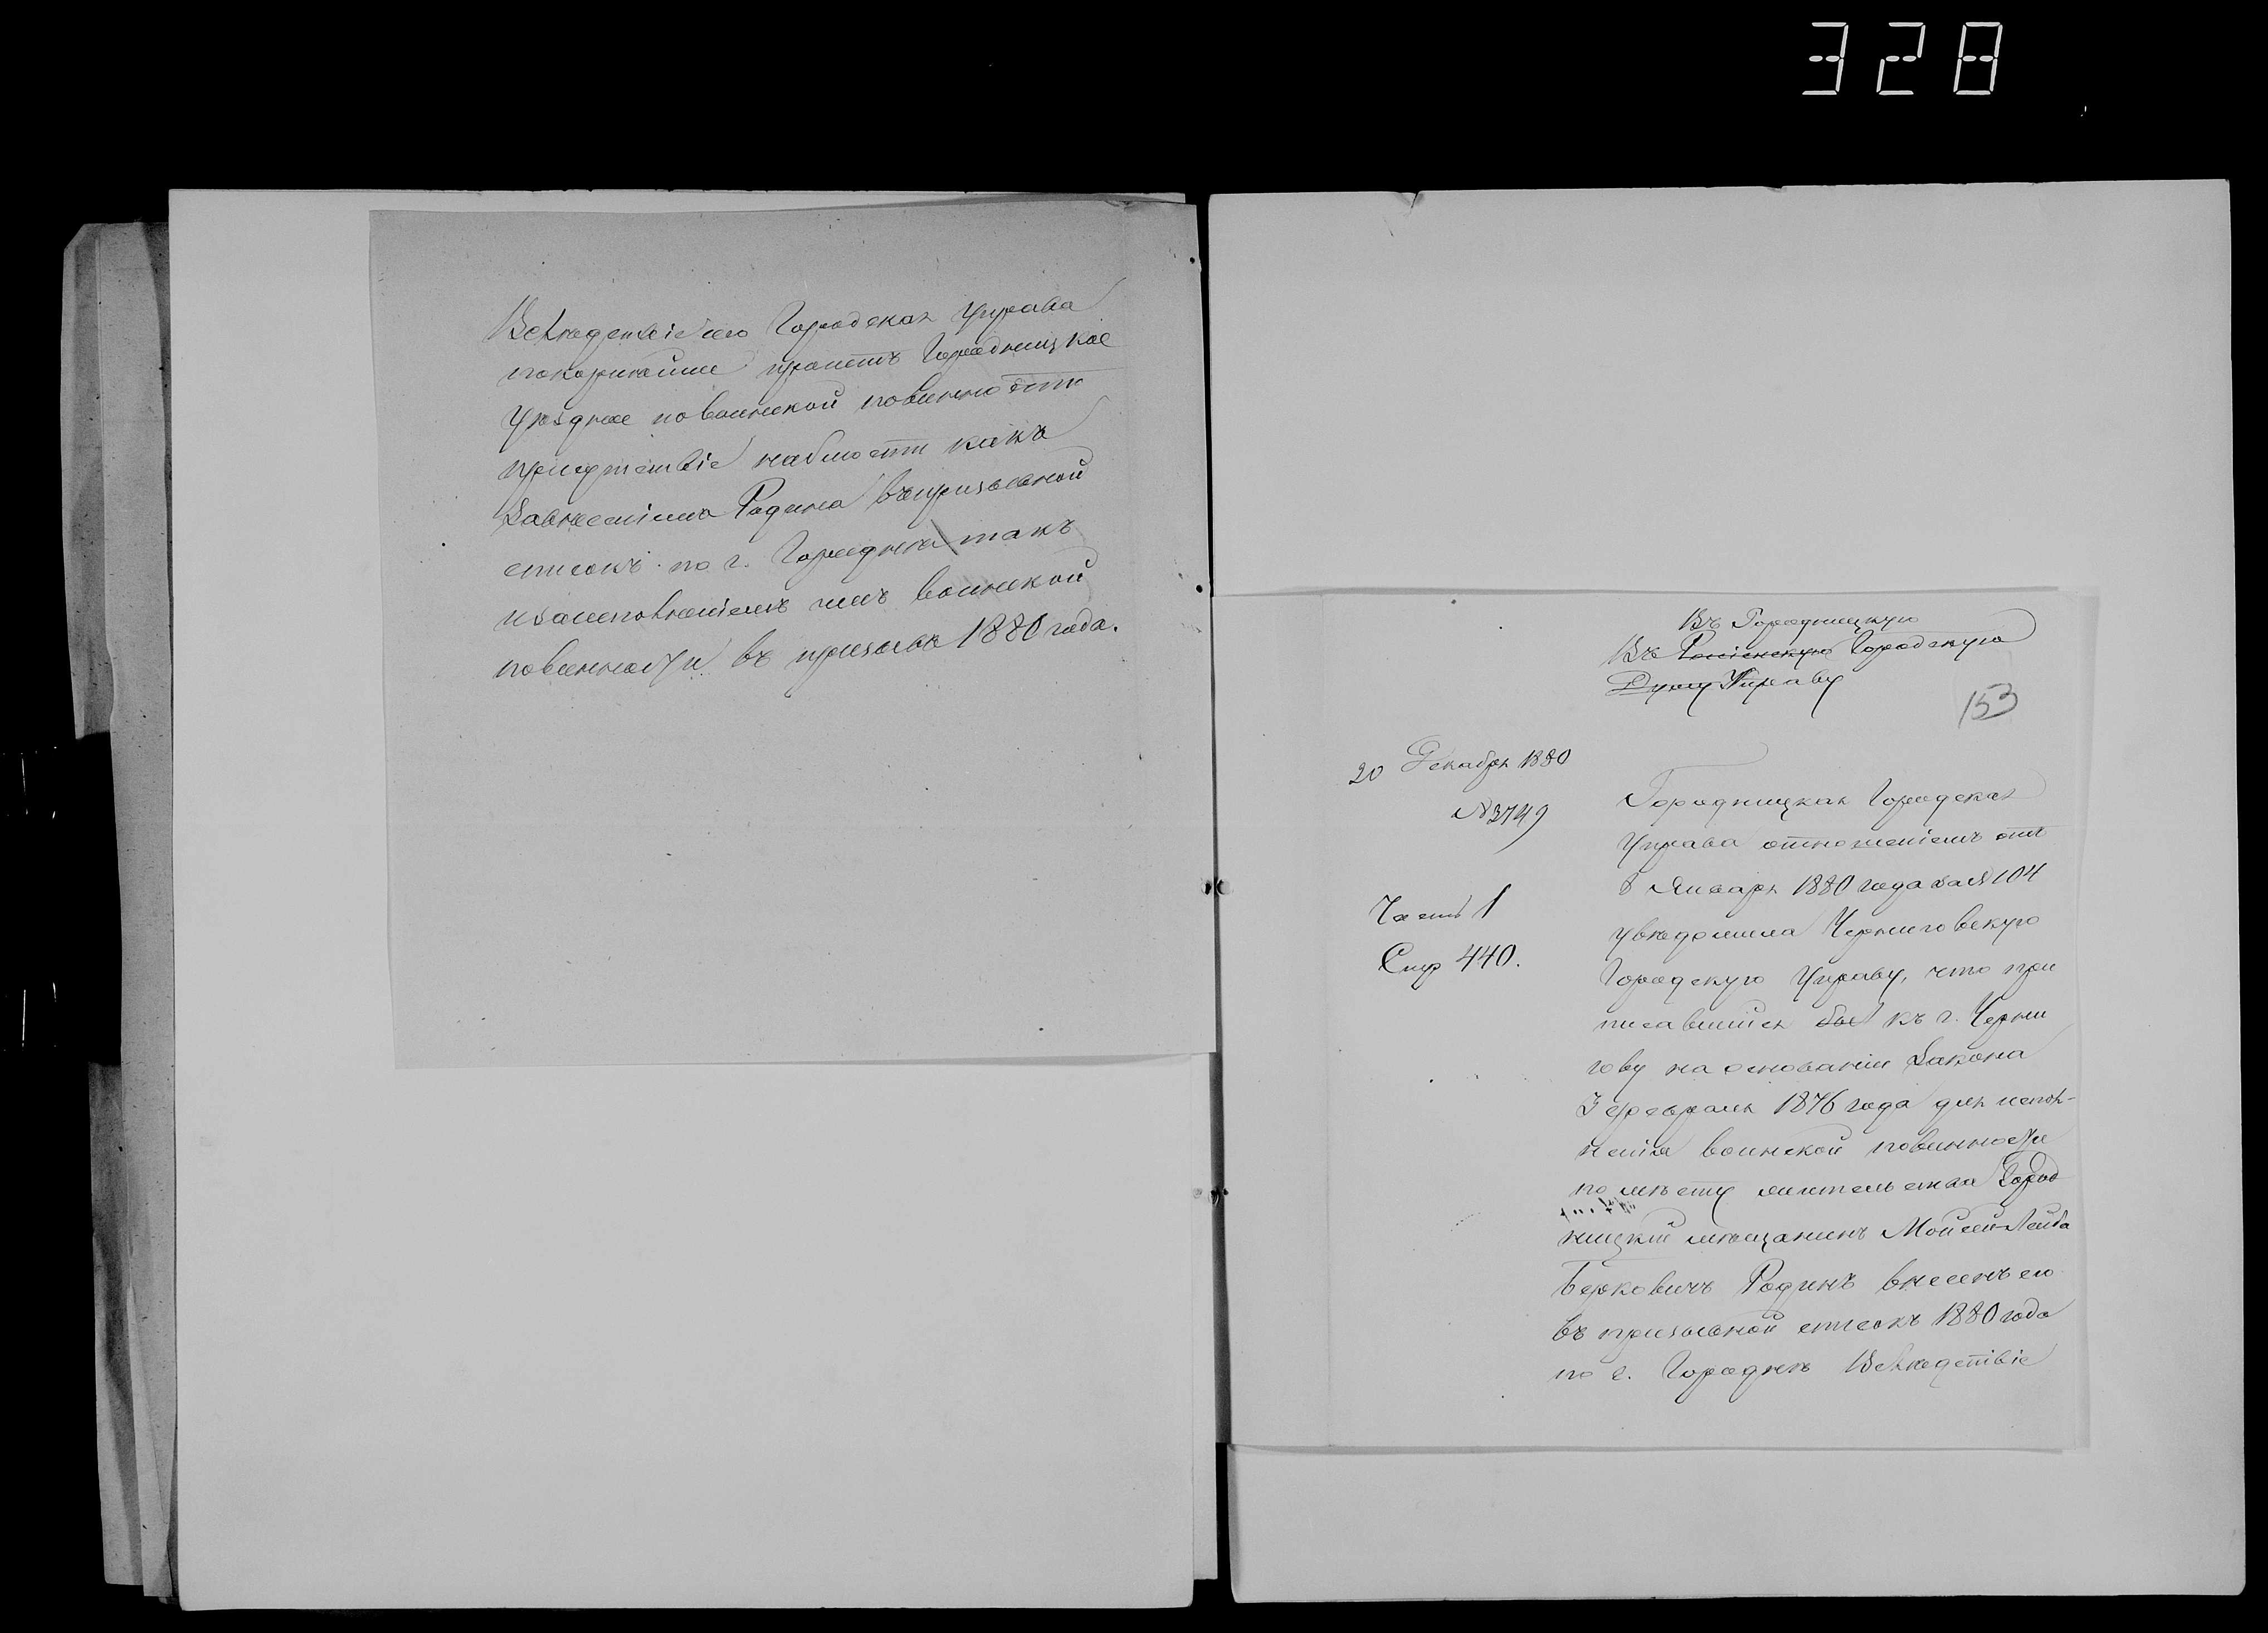 328
Вслѣдствіе сего Городская Управа
покорнѣйше проситъ Городницкое
Уѣздное по воинской повинности
присутствіе наблюсти какъ
за внесеніемъ Родина въ призывной
списокъ по г. Городнѣ такъ
и за исполненіемъ имъ воинской
повинности въ призывъ 1880 года.
Въ Городницкую
Въ Городскую
Думу Управу
153
20 Декабря 1880
№ 3749
Часть 1
Стр 440.
Городницкая Городская
Управа отношеніемъ отъ
8 Января 1880 года за № 104
увѣдомила Черниговскую
Городскую Управу, что при
писавшійся бы къ г. Черни
гову на основаніи Закона
3 февраля 1876 года для испол-
ненія воинской повинности
по мѣсту жительства Город
ницкій мѣщанинъ Мойсей-Лейба
Берковичъ Родинъ внесенъ ею
въ призывной списокъ 1880 года
по г. Городнѣ Вслѣдствіе